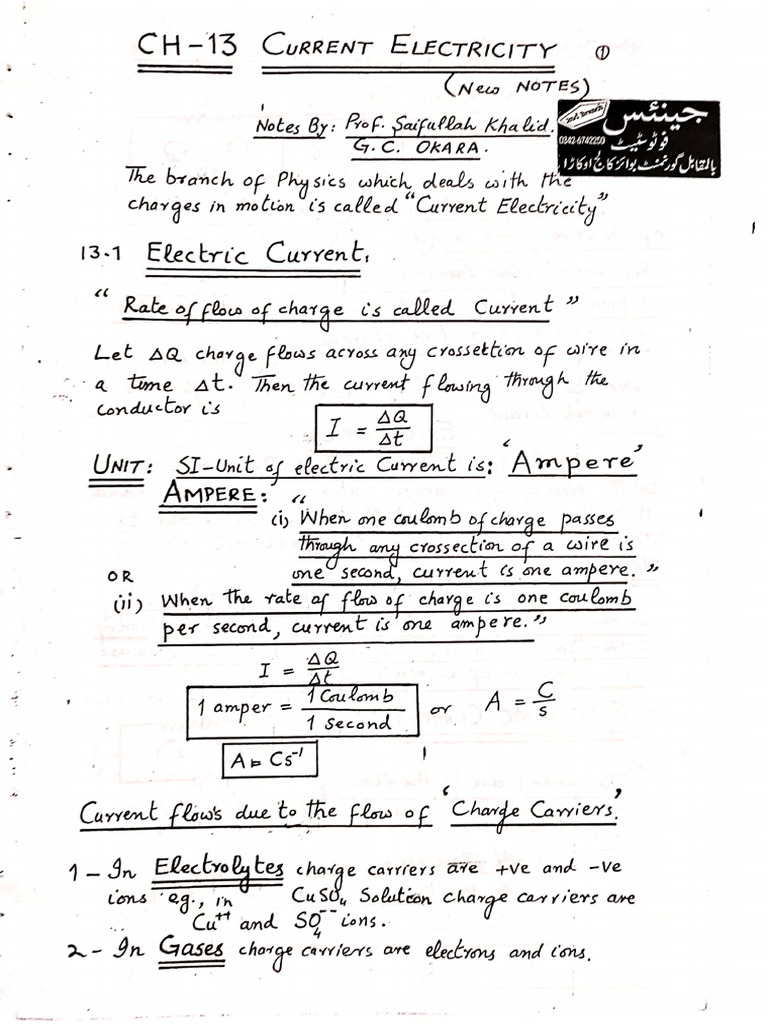 CH-13 CURRENT ELECTRICITY ①
(New NOTES)
Notes By: Prof. Saifullah Khalid.
G.C. OKARA.
جینئس
فوٹوسٹیٹ
0342-6742250
بالمقابل گورنمنٹ بوائز کالج اوکاڑا
The branch of Physics which deals with the
charges in motion is called "Current Electricity"
13.1 Electric Current.
"Rate of flow of charge is called Current"
Let ΔQ charge flows across any crossettion of wire in
a time Δt. Then the current flowing through the
conductor is
I = ΔQ/Δt
UNIT: SI-Unit of electric Current is: 'Ampere'
AMPERE: "
(i) When one coulomb of charge passes
through any crossection of a wire is
one second, current is one ampere."
OR
(ii) When the rate of flow of charge is one coulomb
per second, current is one ampere."
I = ΔQ/Δt
1 amper = 1 Coulomb/1 Second or A = C/s
A = Cs⁻¹
Current flows due to the flow of 'Charge Carriers'
1 - In Electrolytes charge carriers are +ve and -ve
ions e.g., in CuSO₄ Solution charge carriers are
Cu⁺⁺ and SO₄⁻⁻ ions.
2 - In Gases charge carriers are electrons and ions.